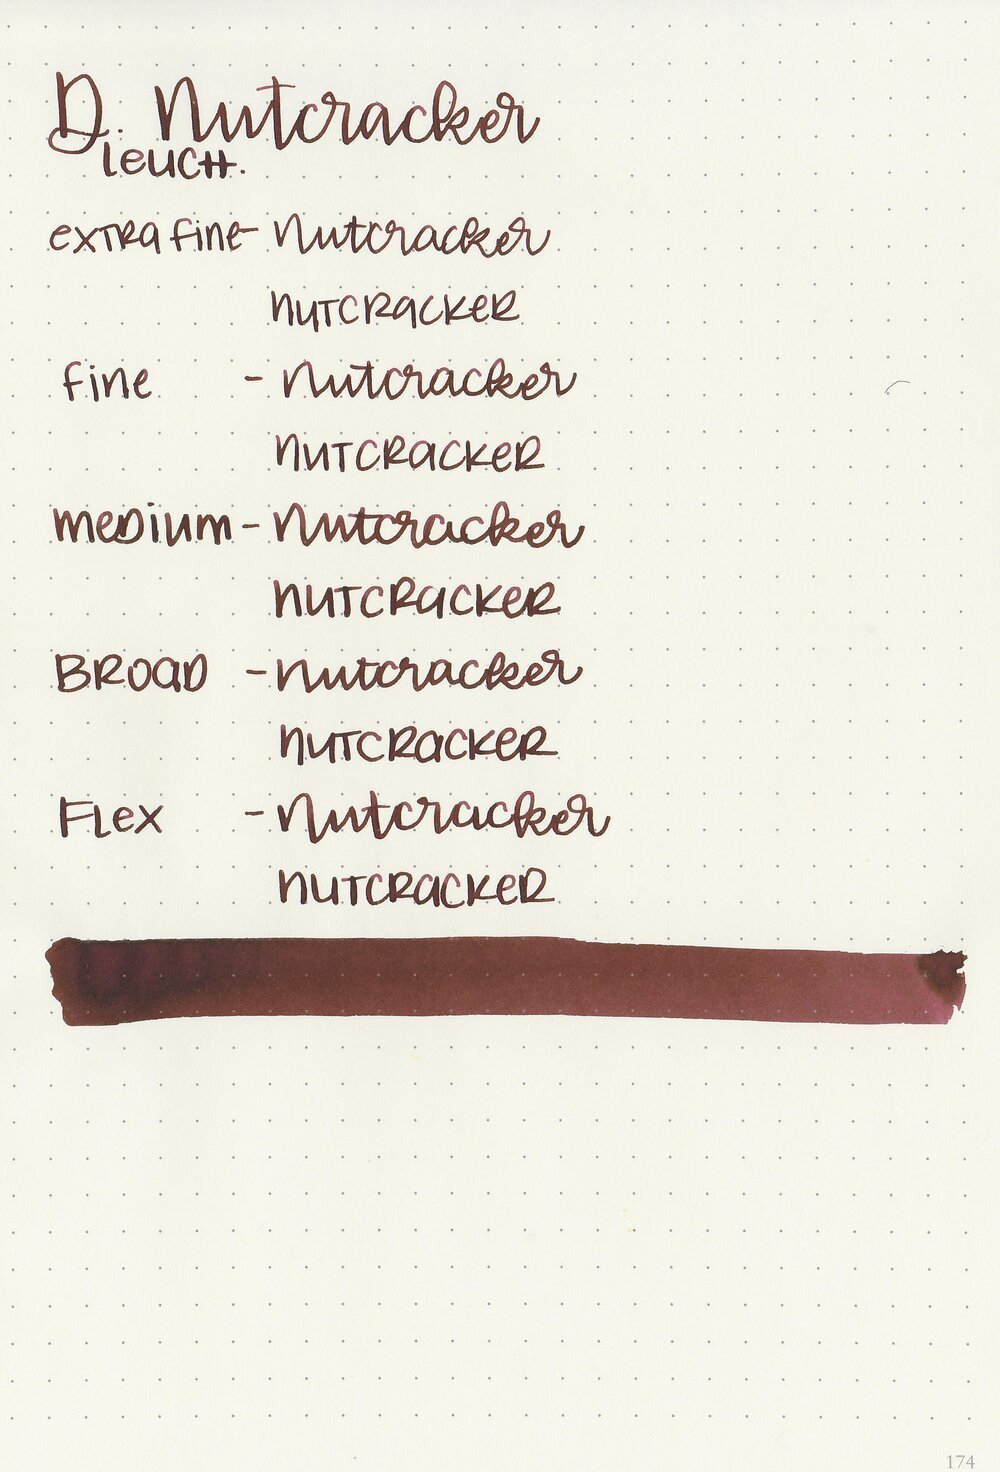 D. Nutcracker
Leuctt.
extra fine - Nutcracker
nutcracker
fine - Nutcracker
nutcracker
medium - Nutcracker
nutcracker
Broad - Nutcracker
nutcracker
Flex - Nutcracker
nutcracker
174